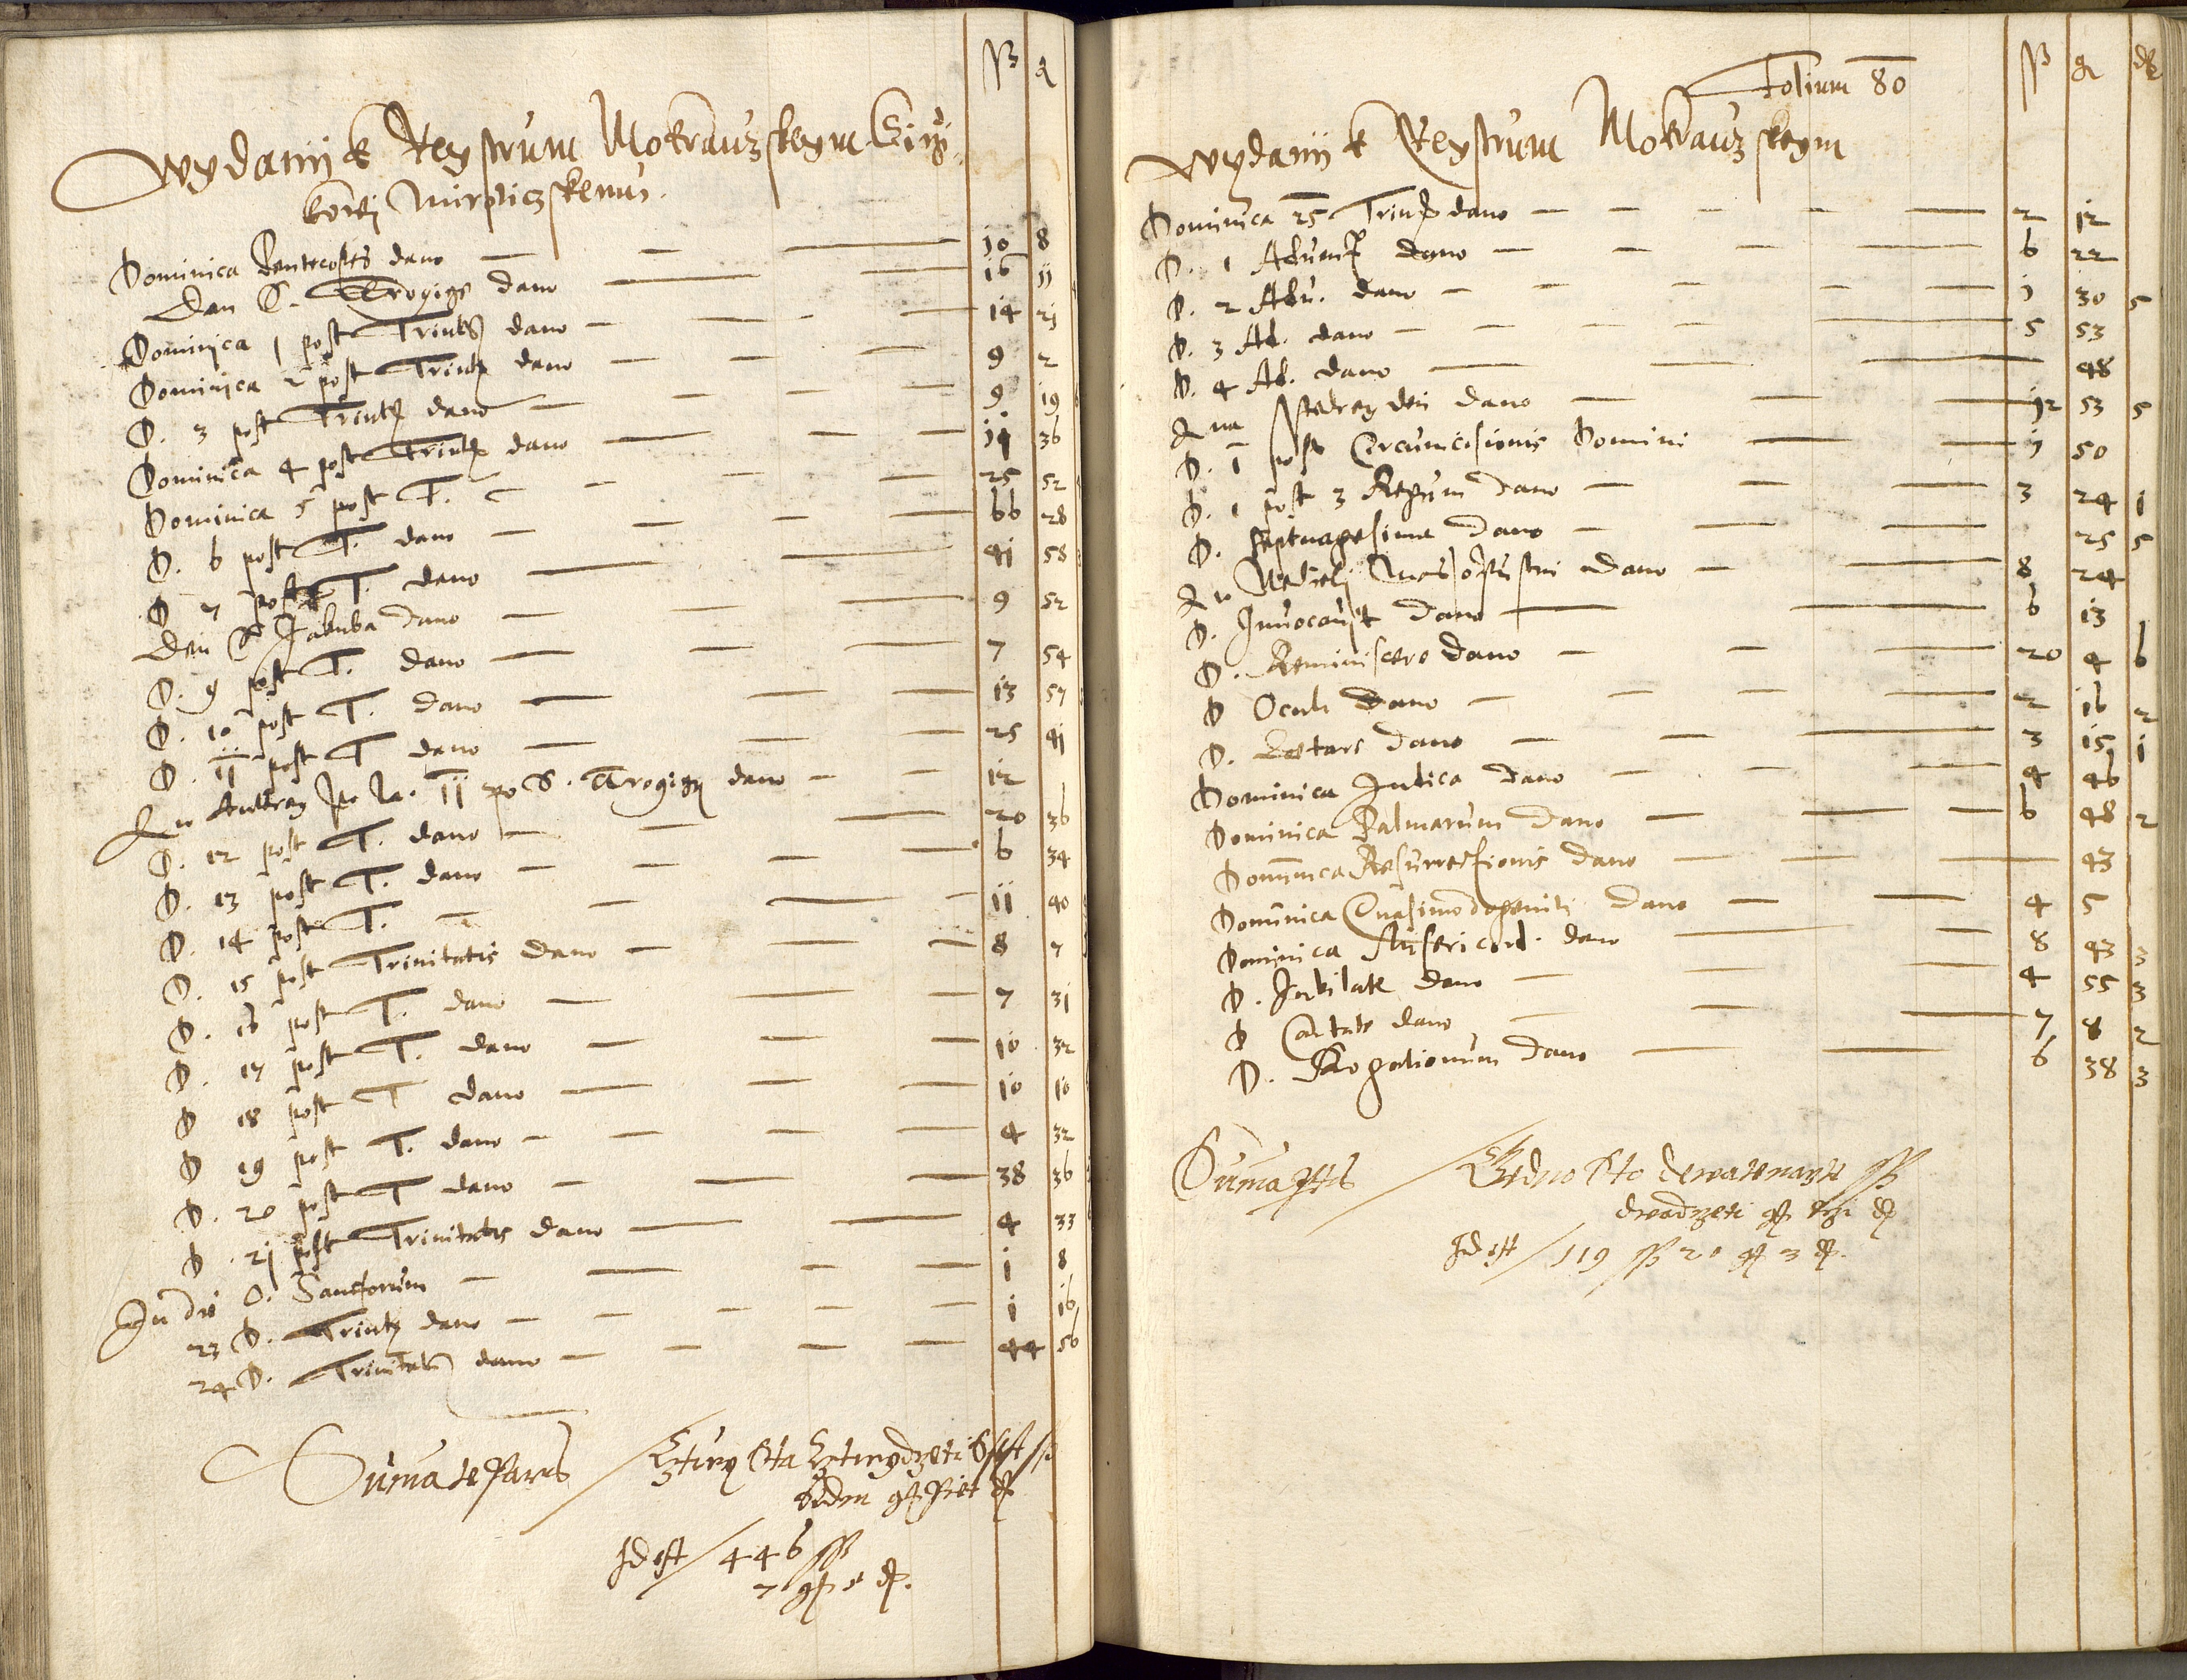 ß g
Wydanij k Regstrum Mokrauzskeym Girzi
kowi Miroticzskemu.
Dominica Pentecostes dano — 10 8
Den S. Trogigze dano — 16 11
Dominica 1 post Trinit dano — 14 21
Dominica 2 post Trinit dano — 9 2
D. 3 post Trinit dano — 9 19
Dominica 4 post Trinit dano — 14 36
Dominica 5 post T. — 25 52
D. 6 post T. dano — 66 28
D 7 post T. dano — 41 58
Den S Jakuba dano — 9 52
D. 9 post T. dano — 7 54
D. 10 post T. dano — 13 57
D. 11 post T dano — 25 41
po S. Trogigy dano — 12
D. 12 post T. dano — 20 36
D. 13 post T. dano — 6 34
D. 14 post T. — 11 40
D. 15 post Trinitatis dano — 8 7
D. 16 post T. dano — 7 31
D. 17 post T. dano — 10 32
D 18 post T dano — 10 10
D 19 post T. dano — 4 32
D. 20 post T dano — 38 36
D. 21 post Trinitatis dano — 4 33
In die O. Sanctorum — 1 8
23 D. Trinit dano — 1 16
24 D. Trinitatis dano — 44 56
Suma te Parts / Cztirzy Sta Cztirydzeti Sest ß
Sedm gß Piet d
Id est / 446 ß
7 g 5 d.
Folium 80
ß g d
Wydanij k Regstrum Mokrauzskeym
Dominica 25 Trinit dano — 2 12
D. 1 Aduent dano — 6 22
D. 2 Adu. dano — 1 30 5
D. 3 Ad. dano — 5 53
D. 4 Ad. dano — 48
Na Sstedrey den dano — 12 53 5
D. 1 post Circumcisionis Domini — 1 50
D. 1 post 3 Regum dano — 3 24 1
D. Septuagesima dano — 25 5
W Nedieli Masopustni dano — 8 24
D. Inuocauit dano — 6 13
D. Reminiscere dano — 20 4 6
D Oculi dano — 2 16 2
D. Letare dano — 3 15 1
Dominica Iudica dano — 4 46
Dominica Palmarum dano — 6 48 2
Dominica Resurrectionis dano — 43
Dominica Quasimodogeniti dano — 4 5
Dominica Misericord. dano — 8 43 3
D. Iubilate dano — 4 55 3
D Cantate dano — 7 8 2
D. Rogationum dano — 6 38 3
Suma / Gedno Sto dewatenaste ß
dwadzeti g trzi d
Id est / 119 ß 20 g 3 d.